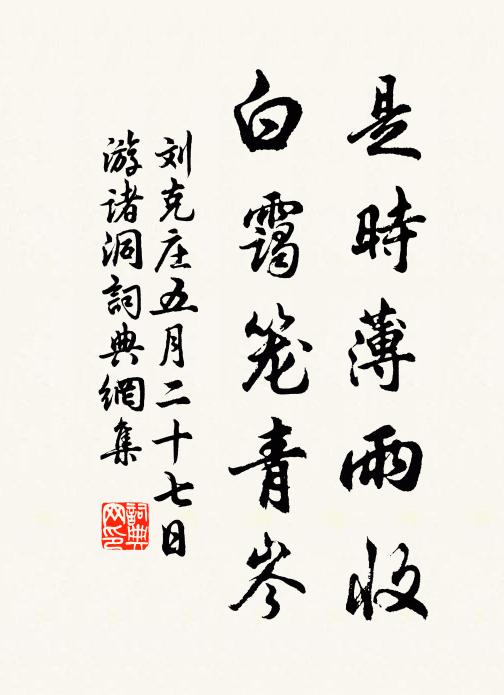 是時薄雨收
白靄笼青岑
刘克庄五月二十七日
游诸洞詞典網集
詞典
网印